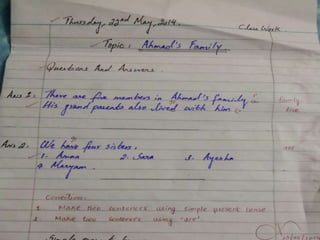 Thursday, 22nd May, 2014.
Class Work
Topic: Ahmad's Family
Questions And Answers
Ans 1: There are five members in Ahmad's family.
His grand parents also lived with him.
family
live
Ans 2: We have four sisters.
are
1. Amna 2. Sara 3. Ayesha
4. Maryam.
Corrections:
1 Make two sentences using simple present tense
2 Make two sentences using 'are'